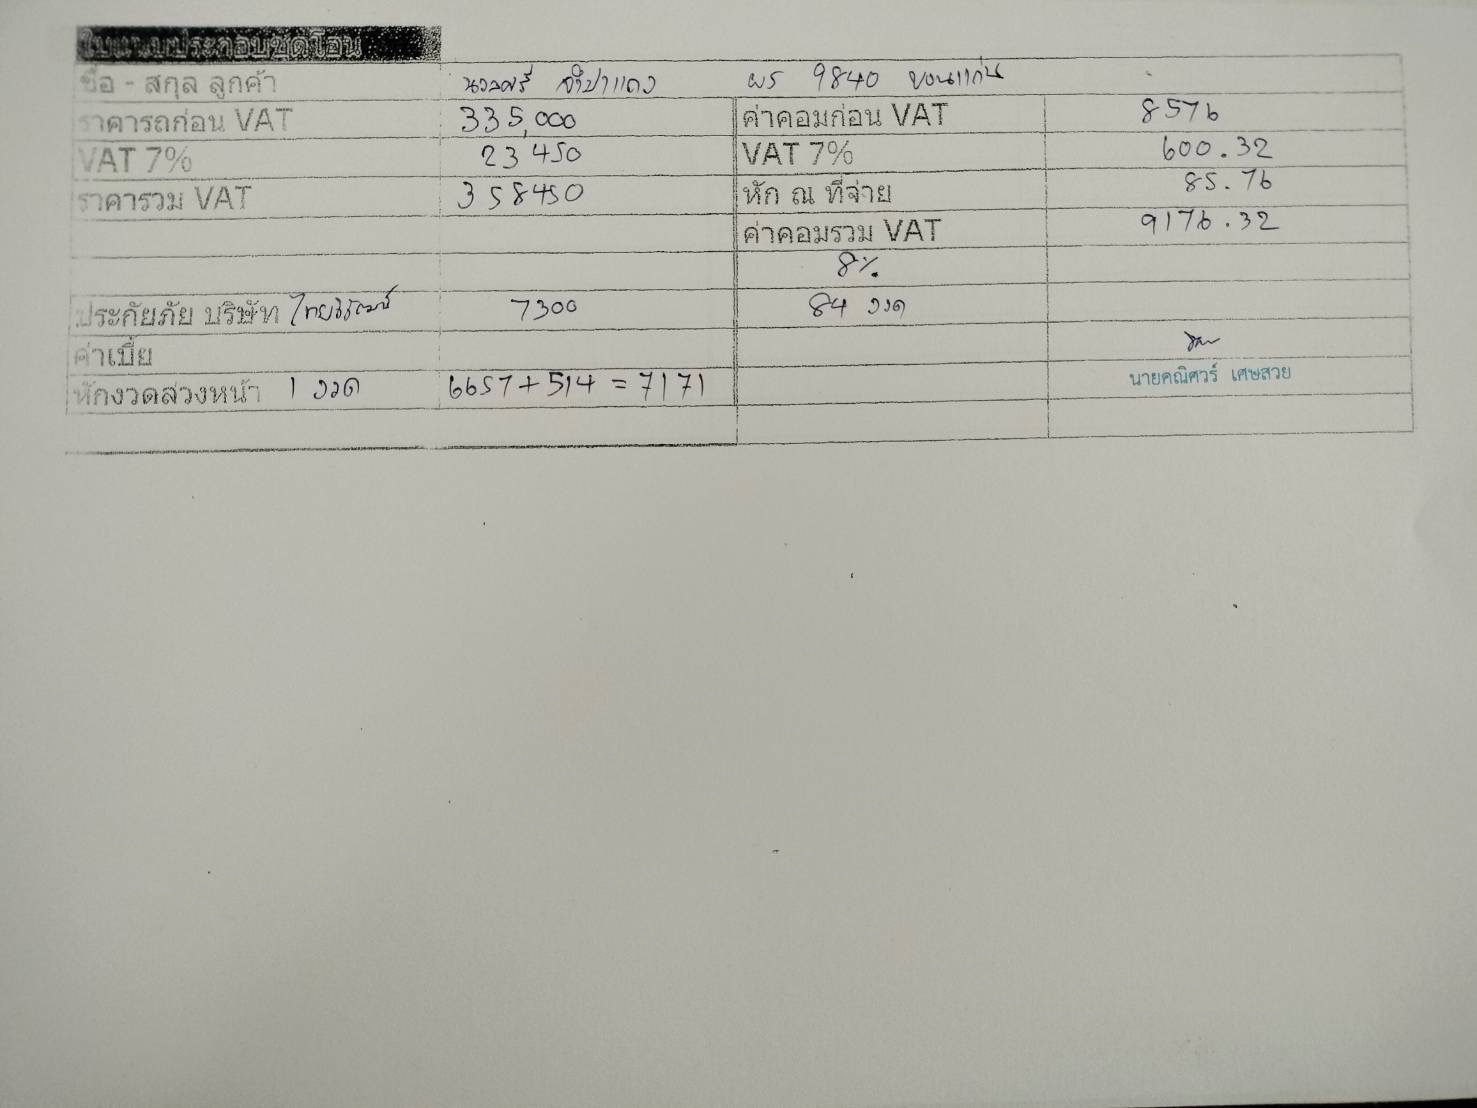 ใบแนบประกอบชุดโอน
ชื่อ - สกุล ลูกค้า นวลศรี จำปาแดง ผร 9840 ขอนแก่น
ราคารถก่อน VAT 335,000 ค่าคอมก่อน VAT 8576
VAT 7% 23450 VAT 7% 600.32
ราคารวม VAT 358450 หัก ณ ที่จ่าย 85.76
ค่าคอมรวม VAT 9176.32
8%
ประกัยภัย บริษัท ไทยวิวัฒน์ 7300 84 งวด
ค่าเบี้ย
หักงวดล่วงหน้า 1 งวด 6657+514 = 7171 นายคณิศวร์ เศษสวย